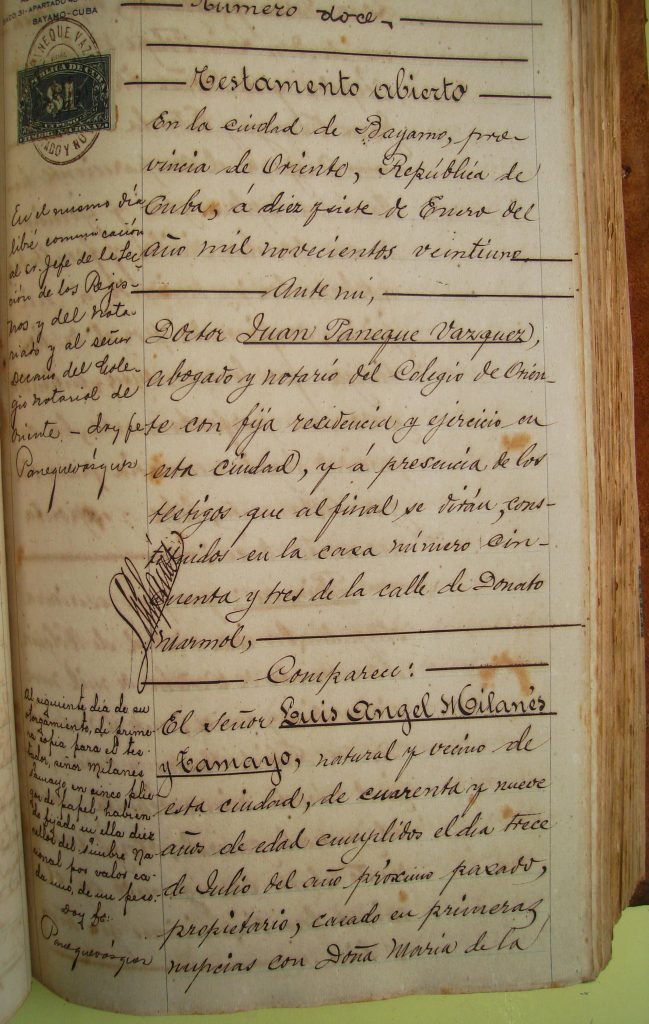 BAYAMO-CUBA
Número doce,
Testamento abierto
En la ciudad de Bayamo, pro-
vincia de Oriente, República de
Cuba, á diez y siete de Enero del
año mil novecientos veintiuno.
Ante mi,
Doctor Juan Paneque Vazquez,
abogado y notario del Colegio de Orien-
te con fija residencia y ejercicio en
esta ciudad, y á presencia de los
testigos que al final se dirán, cons-
tituidos en la casa número cin-
cuenta y tres de la calle de Donato
Marmol,
Comparece:
El señor Luis Angel Milanés
y Tamayo, natural y vecino de
esta ciudad, de cuarenta y nueve
años de edad cumplidos el día trece
de Julio del año próximo pasado,
propietario, casado en primeras
nupcias con Doña Maria de la
$1
En el mismo día
libré comunicación
al sr. Jefe de la Sec-
ción de los Regis-
tros y del Nota-
riado y al señor
Decano del Cole-
gio Notarial de
Oriente. - doy fe
Panequevázquez
Al siguiente día de su
otorgamiento, dí prime-
ra copia para el tes-
tador, señor Milanés
Tamayo en cinco plie-
gos de papel, habien-
do fijado en ella diez
sellos del timbre Na-
cional por valor ca-
da uno, de un peso.
doy fe:
Panequevázquez